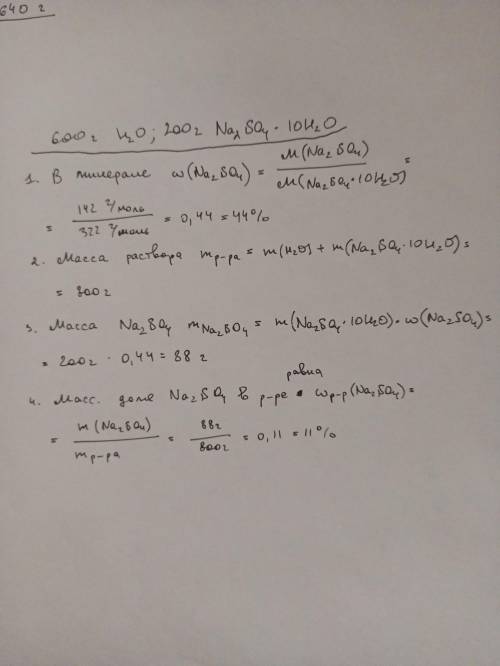 640 г
600г H₂O ; 200г Na₂SO₄ · 10H₂O
1. В минерале ω(Na₂SO₄) = M(Na₂SO₄) / M(Na₂SO₄·10H₂O) =
= 142 г/моль / 322 г/моль = 0,44 = 44%
2. Масса раствора m р-ра = m(H₂O) + m(Na₂SO₄·10H₂O) =
= 800г
3. Масса Na₂SO₄ m Na₂SO₄ = m(Na₂SO₄·10H₂O) · ω(Na₂SO₄) =
= 200г · 0,44 = 88 г
равна
4. Масс. доля Na₂SO₄ в р-ре ω р-р (Na₂SO₄) =
= m(Na₂SO₄) / m р-ра = 88г / 800г = 0,11 = 11%